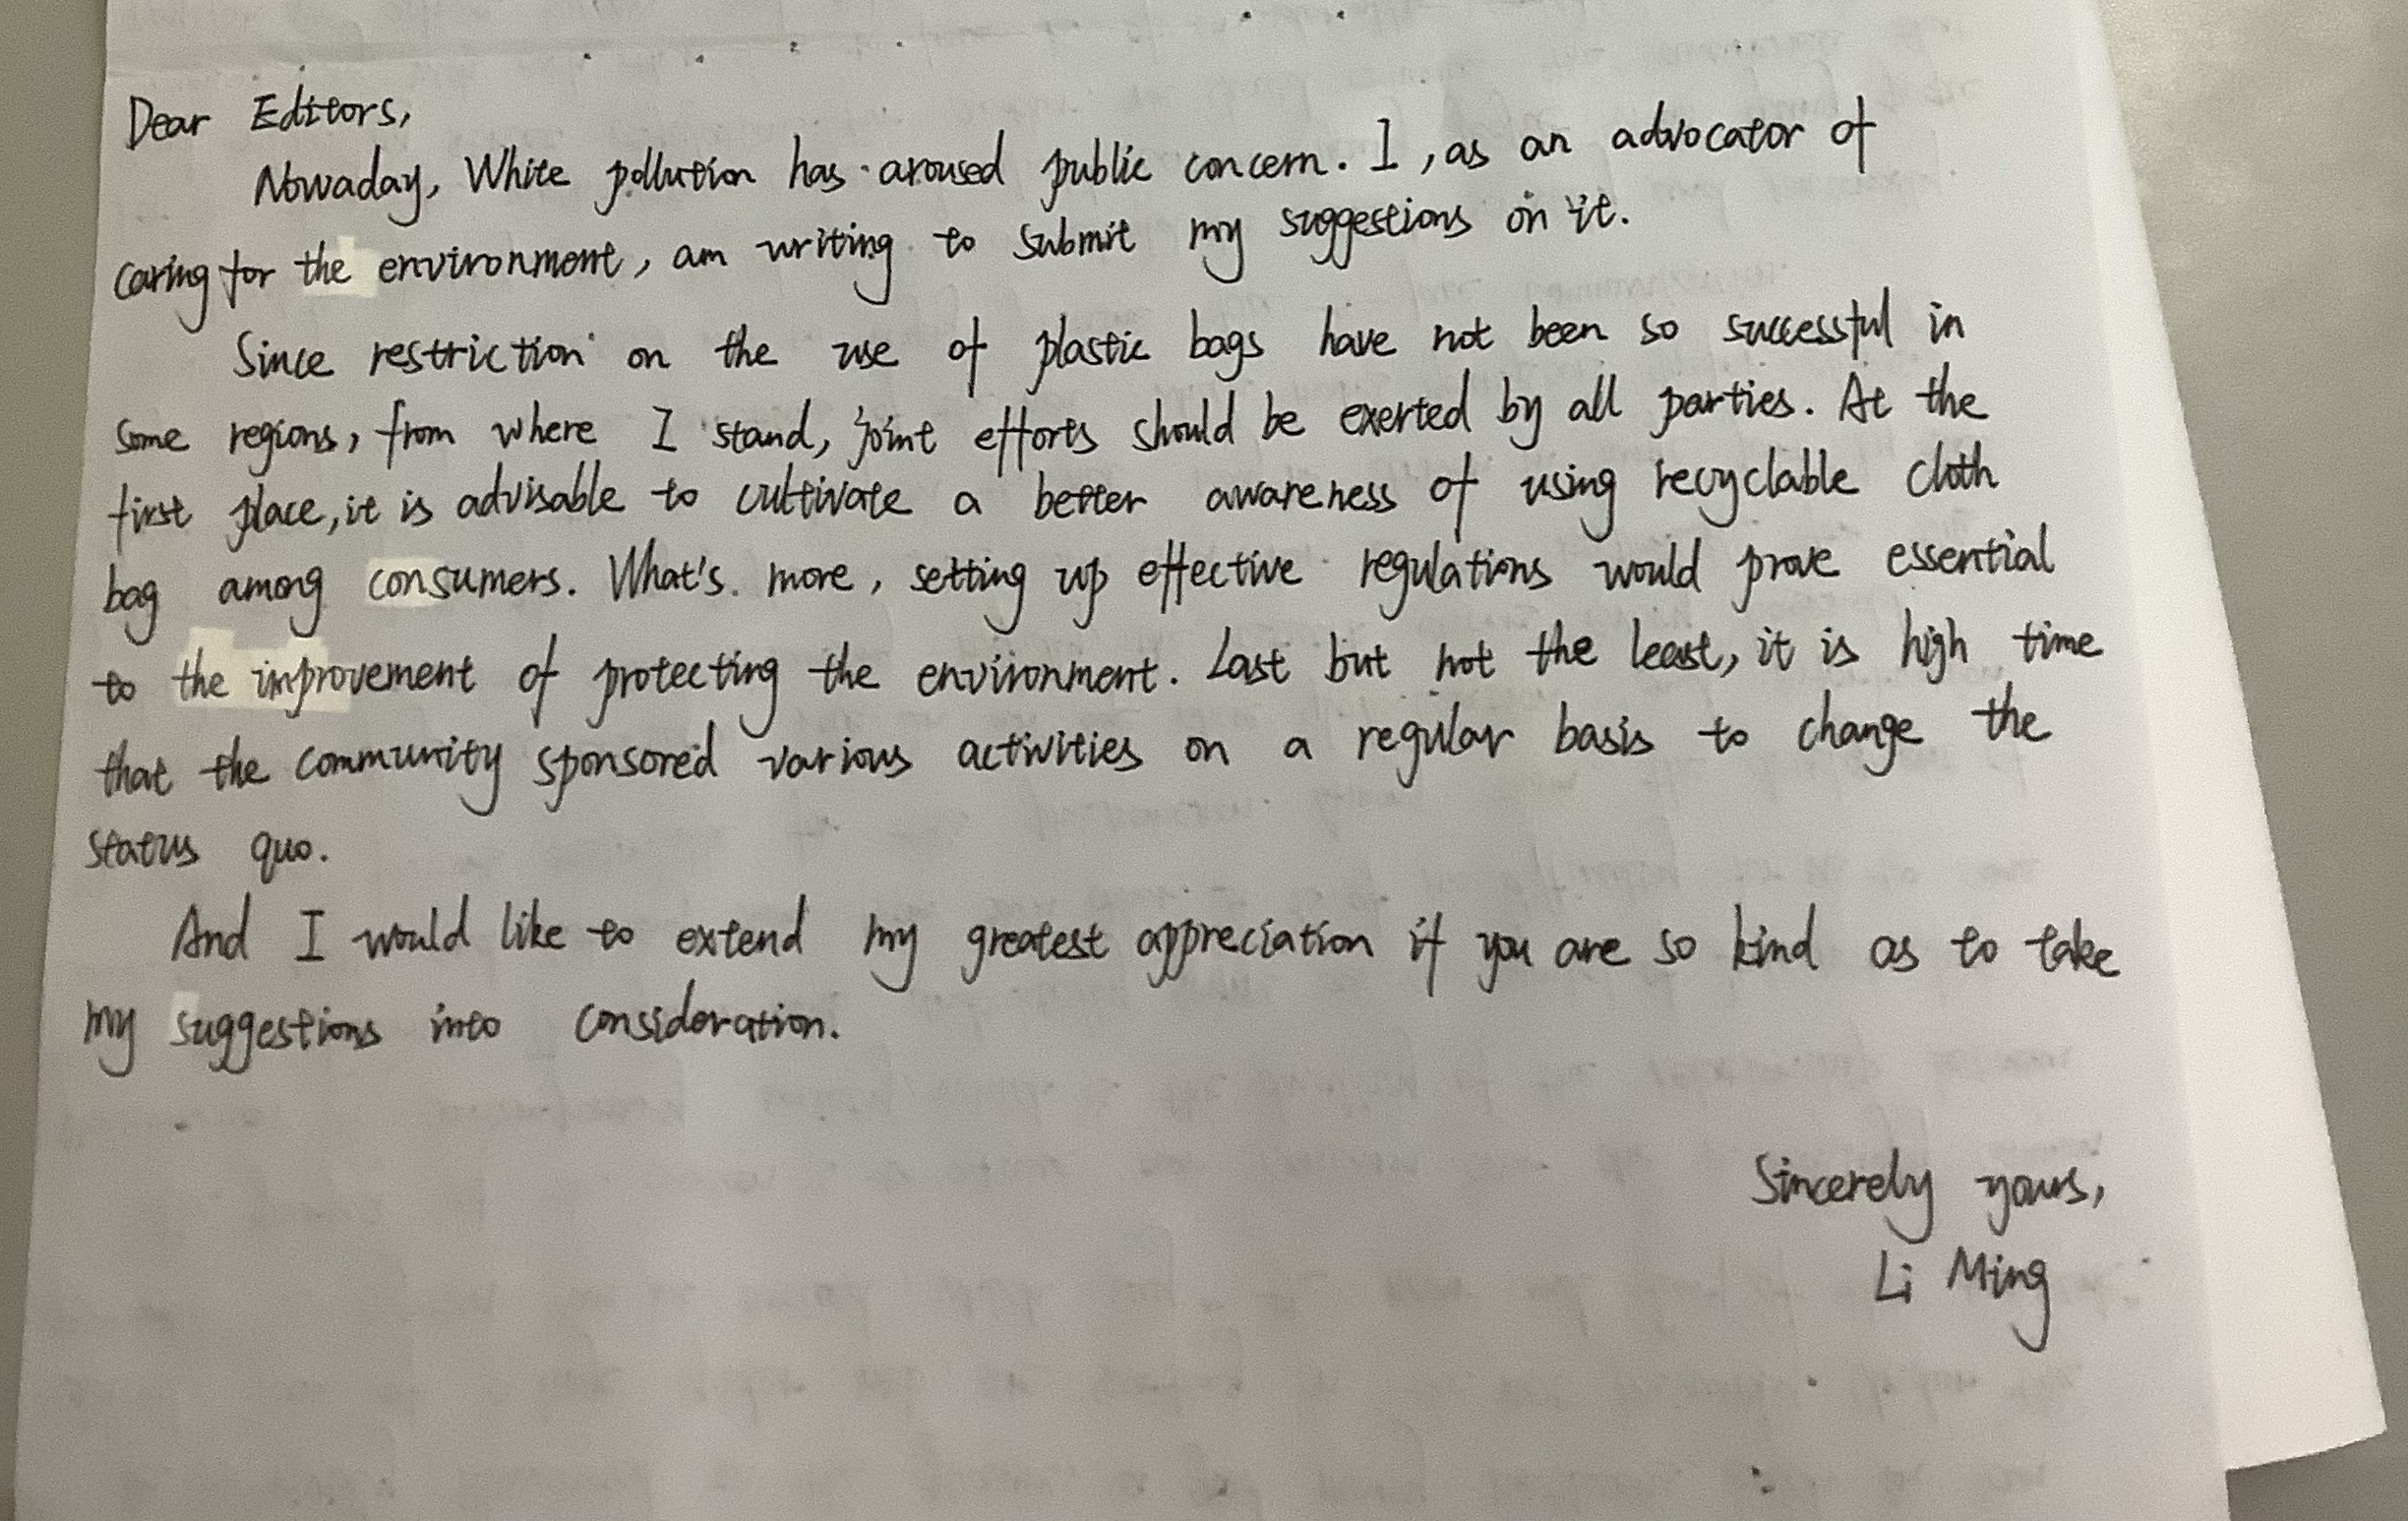 Dear Editors,
Nowaday, White pollution has aroused public concern. I, as an advocator of
caring for the environment, am writing to submit my suggestions on it.
Since restriction on the use of plastic bags have not been so successful in
some regions, from where I stand, joint efforts should be exerted by all parties. At the
first place, it is advisable to cultivate a better awareness of using recyclable cloth
bag among consumers. What's more, setting up effective regulations would prove essential
to the improvement of protecting the environment. Last but not the least, it is high time
that the community sponsored various activities on a regular basis to change the
status quo.
And I would like to extend my greatest appreciation if you are so kind as to take
my suggestions into consideration.
Sincerely yours,
Li Ming